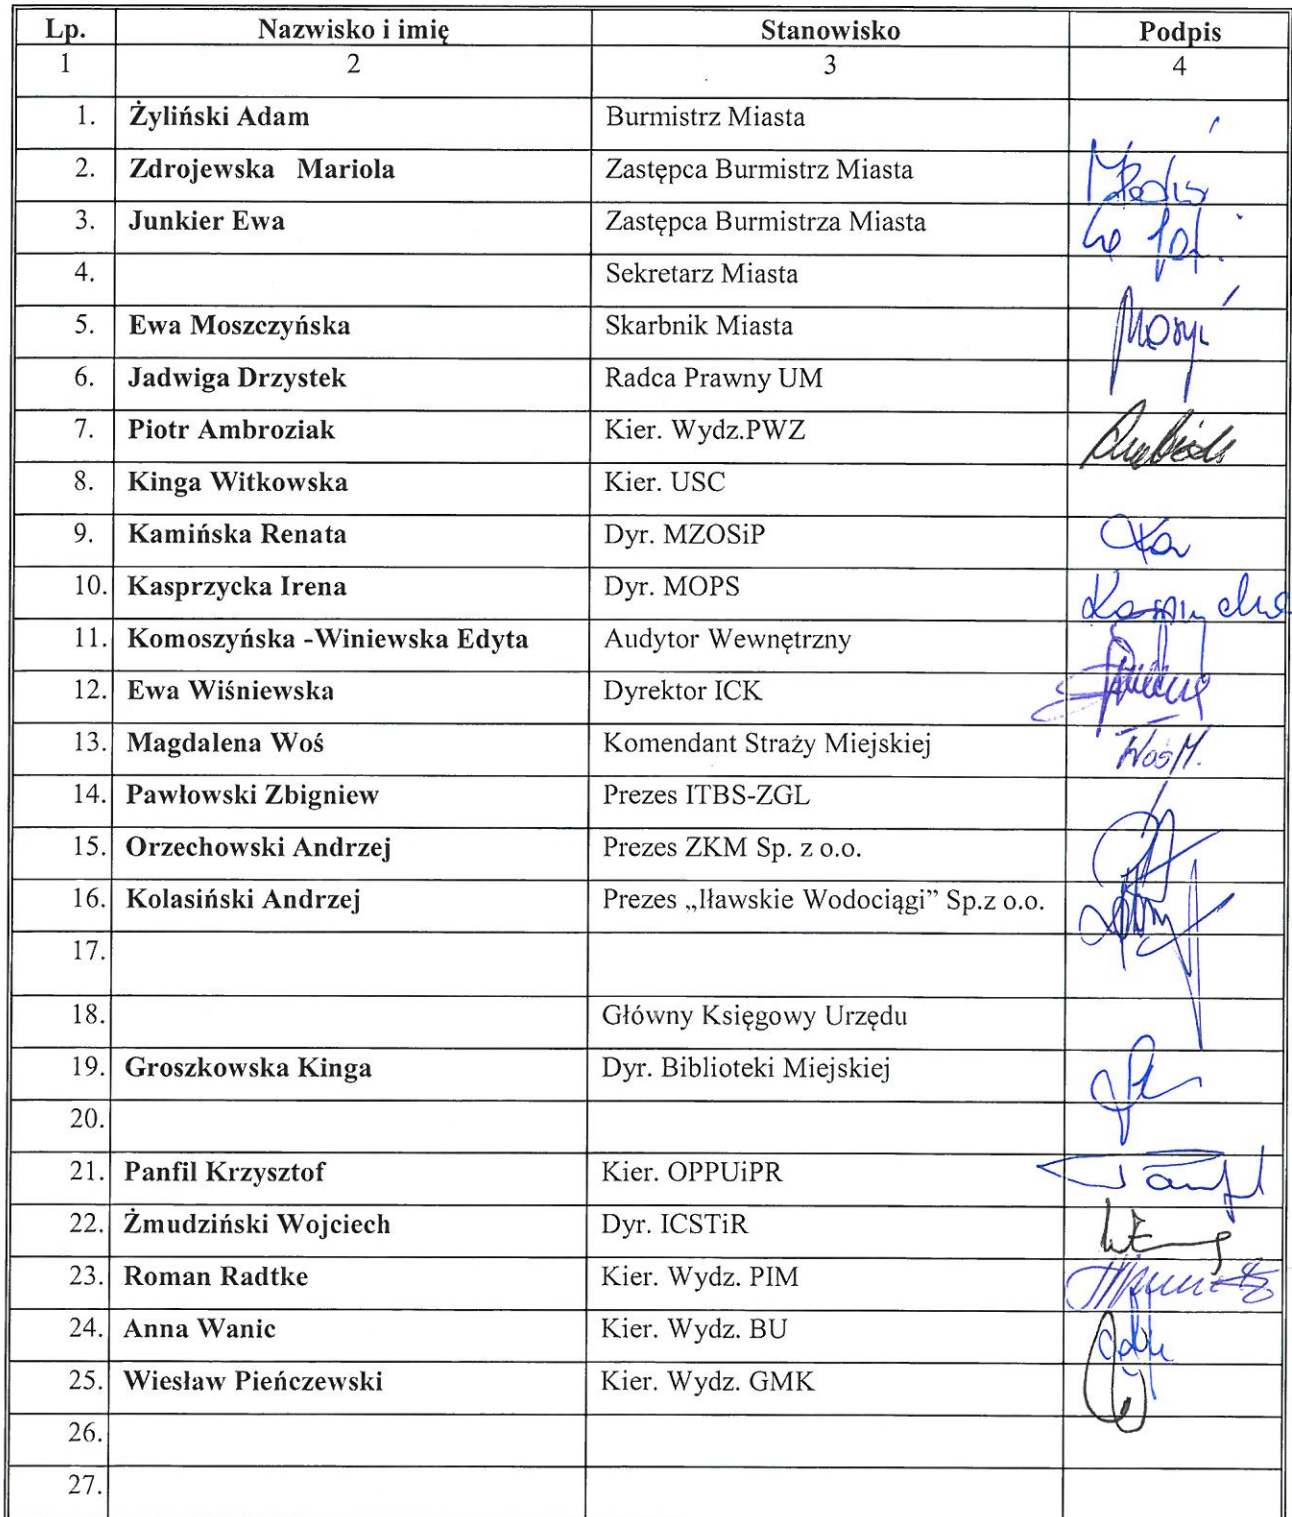 Lp. Nazwisko i imię Stanowisko Podpis
1 2 3 4
1. Żyliński Adam Burmistrz Miasta
2. Zdrojewska Mariola Zastępca Burmistrz Miasta
3. Junkier Ewa Zastępca Burmistrza Miasta
4. Sekretarz Miasta
5. Ewa Moszczyńska Skarbnik Miasta
6. Jadwiga Drzystek Radca Prawny UM
7. Piotr Ambroziak Kier. Wydz.PWZ
8. Kinga Witkowska Kier. USC
9. Kamińska Renata Dyr. MZOSiP
10. Kasprzycka Irena Dyr. MOPS
11. Komoszyńska -Winiewska Edyta Audytor Wewnętrzny
12. Ewa Wiśniewska Dyrektor ICK
13. Magdalena Woś Komendant Straży Miejskiej Woś M.
14. Pawłowski Zbigniew Prezes ITBS-ZGL
15. Orzechowski Andrzej Prezes ZKM Sp. z o.o.
16. Kolasiński Andrzej Prezes „Iławskie Wodociągi” Sp.z o.o.
17.
18. Główny Księgowy Urzędu
19. Groszkowska Kinga Dyr. Biblioteki Miejskiej
20.
21. Panfil Krzysztof Kier. OPPUiPR
22. Żmudziński Wojciech Dyr. ICSTiR
23. Roman Radtke Kier. Wydz. PIM
24. Anna Wanic Kier. Wydz. BU
25. Wiesław Pieńczewski Kier. Wydz. GMK
26.
27.